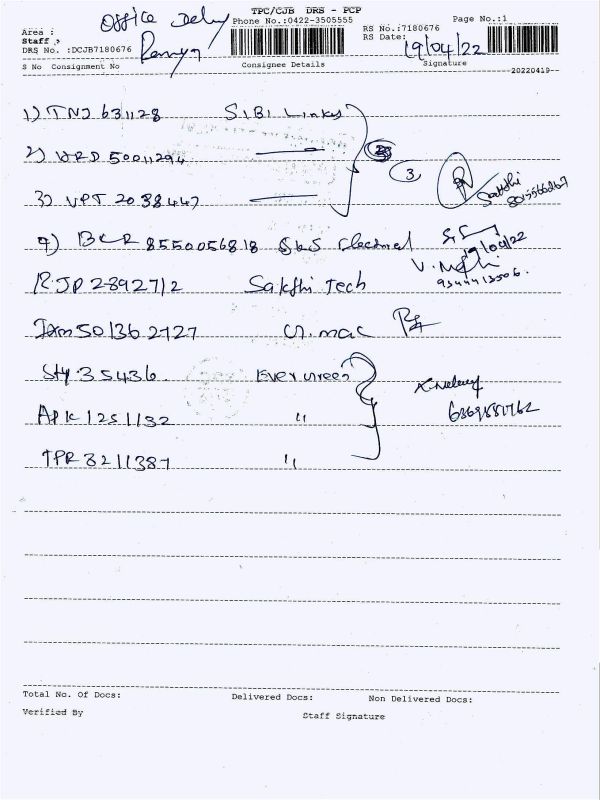 Office
TPC/CJB DRS - PCP
Phone No.:0422-3505555
Page No.:1
Area :
Staff :
DRS No. :DCJB7180676
Ramya
RS No.:7180676
RS Date:
19/04/22
S No Consignment No
Consignee Details
Signature
20220419
1) TNJ 631128 SIBI Links
2) URD 50011294
3) VPT 2038447
3
Sakthi
4) BCR 8550056818 SKS Electrical
19/04/22
RJP 2892712 Sakthi Tech
9344413506.
501362727 G. mac
Sty 35436. Evergreen
APK 1251132 "
TPR 3211387 "
Total No. Of Docs:
Delivered Docs:
Non Delivered Docs:
Verified By
Staff Signature